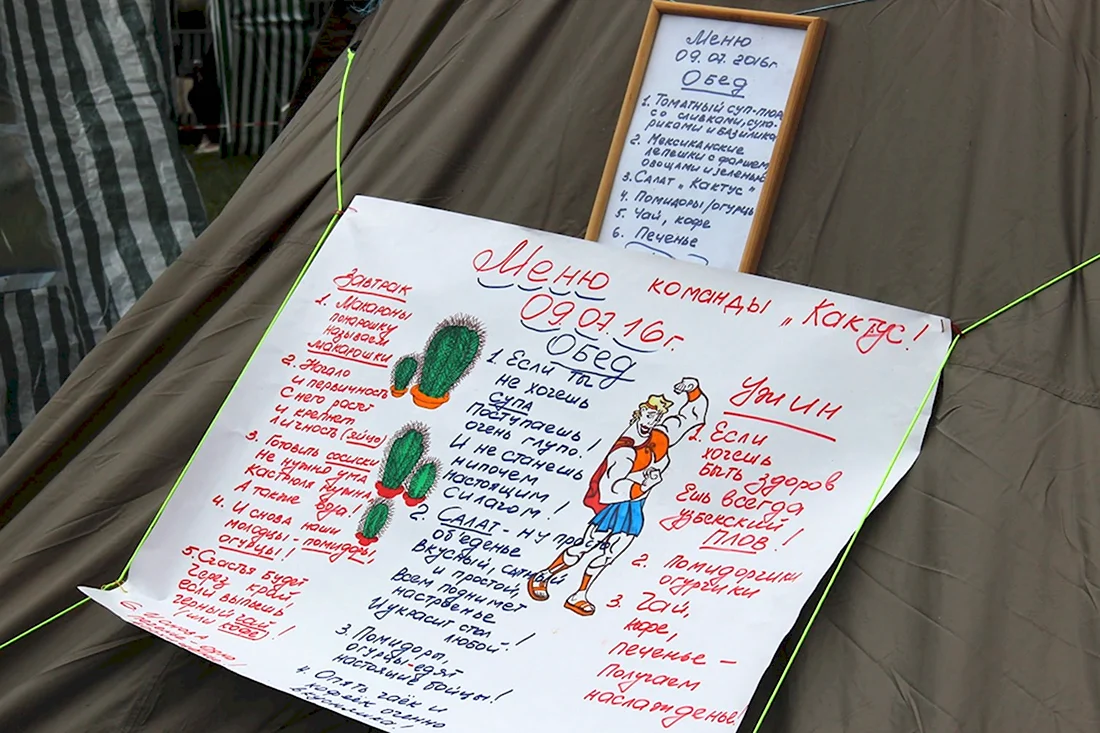 Меню
09.07.2016г.
Обед
1. Томатный суп-пюре
со сливками, суха-
риками и базиликом
2. Мексиканские
лепешки с фаршем,
овощами и зеленью
3. Салат „Кактус"
4. Помидоры/огурцы
5. Чай, кофе
6. Печенье
Меню команды „Кактус!
09.07.16г.
Завтрак
1. Макароны
понарошку
называем
макарошки
2. Начало
и первичность
С него растёт
И крепнет
личность (яйцо)
3. Готовить сосиски
Не нужно ума
Кастрюля нужна
А также вода!
4. И снова наши
молодцы - помидоры,
огурцы!
5. Счастья будет
Через край,
если выпьешь
Черный чай!
(или кофе)
6.
Обед
1. Если ты
не хочешь
супа
Поступаешь
очень глупо!
И не станешь
нипочем
настоящим
силачом!
2. Салат - ну просто
объеденье
Вкусный, сытный
и простой,
Всем поднимет
настроенье
И украсит стол
любой!
3. Помидоры,
огурцы-едят
настоящие бойцы!
4. Опять чаёк и
кофеёк
Ужин
1. Если
хочешь
быть здоров
Ешь всегда
узбекский
Плов!
2. Помидорчики
огурчики
3. Чай,
кофе,
печенье -
Получаем
наслажденье!